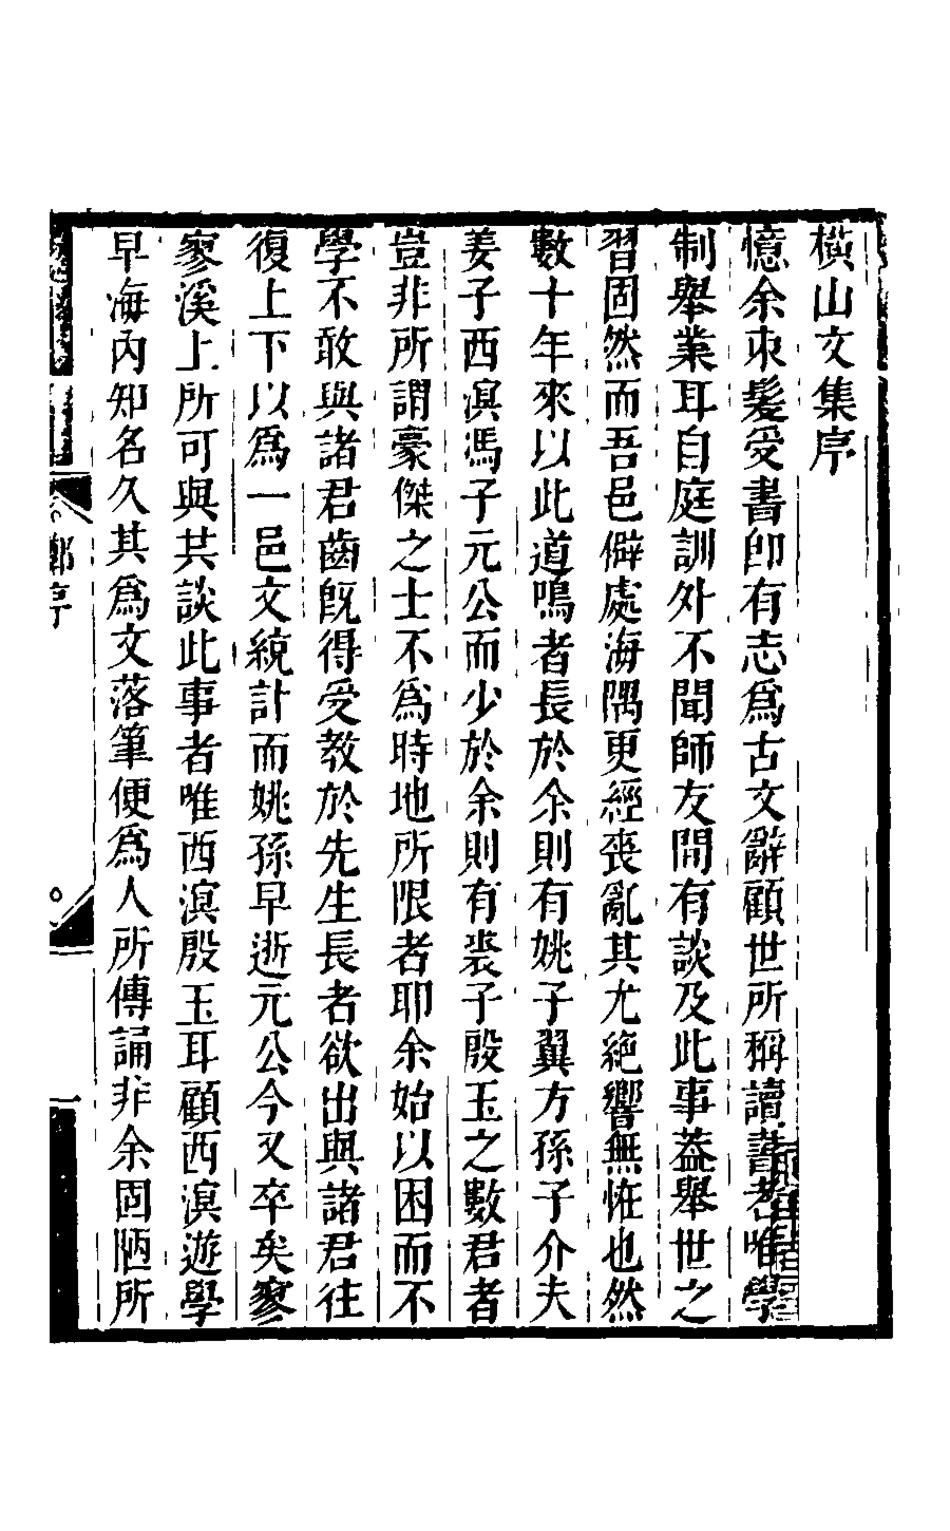 橫山文集序
憶余朿髮受書卽有志爲古文辭顧世所稱讀書者唯學
制舉業耳自庭訓外不聞師友間有談及此事葢舉世之
習固然而吾邑僻處海隅更經喪亂其尤絕響無怪也然
數十年來以此道鳴者長於余則有姚子翼方孫子介夫
姜子西溟馮子元公而少於余則有裘子殷玉之數君者
豈非所謂豪傑之士不爲時地所限者耶余始以困而不
學不敢與諸君齒旣得受教於先生長者欲出與諸君往
復上下以爲一邑文統計而姚孫早逝元公今又卒矣寥
寥溪上所可與共談此事者唯西溟殷玉耳顧西溟遊學
早海內知名久其爲文落筆便爲人所傳誦非余固陋所
鄭序
一